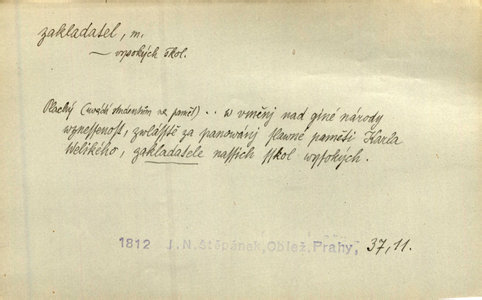 zakladatel, m.
~ vysokých škol.
Plachý (uvádí studentům na paměť) .. w uměnj nad giné národy
wznessenost, zwlásstě za panowánj slawné paměti Karla
Welikého, zakladatele nassich sskol wysokých.
1812 J. N. Štěpánek, Oblež. Prahy, 37, 11.